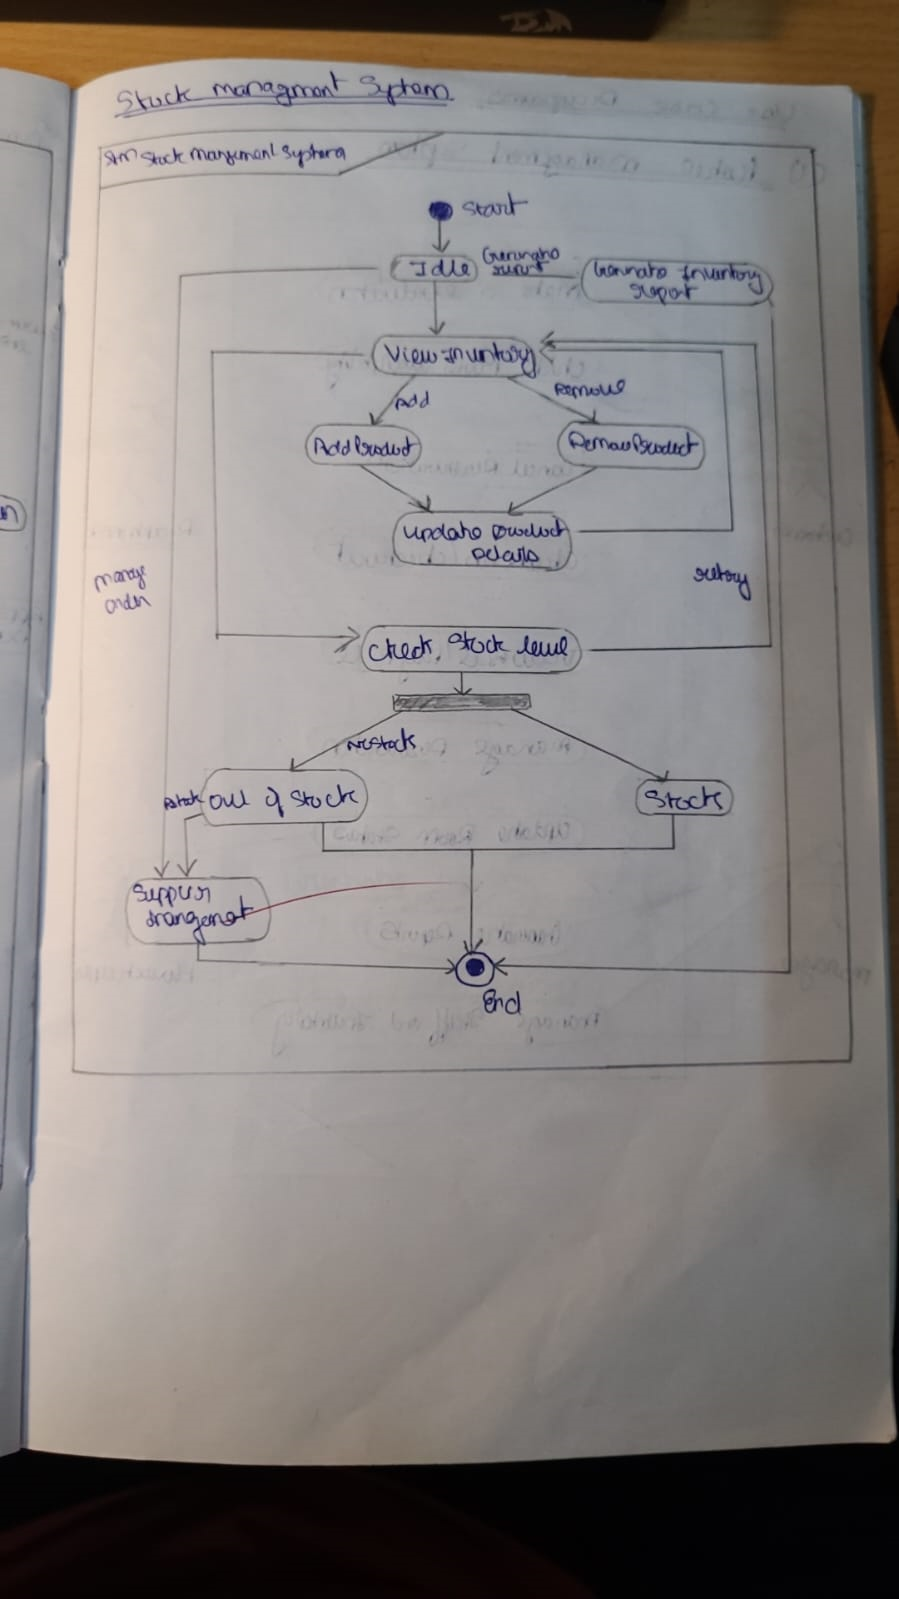 Stock Managment System
Stm Stock Mangement System
Start
Idle
Generate
report
Generate Inventory
report
View Inventory
Add
Remove
Add Product
Remove Product
Update Product
Details
manage
order
retry
Check Stock level
No Stock
Restock
Out of Stock
Stock
Supplier
End